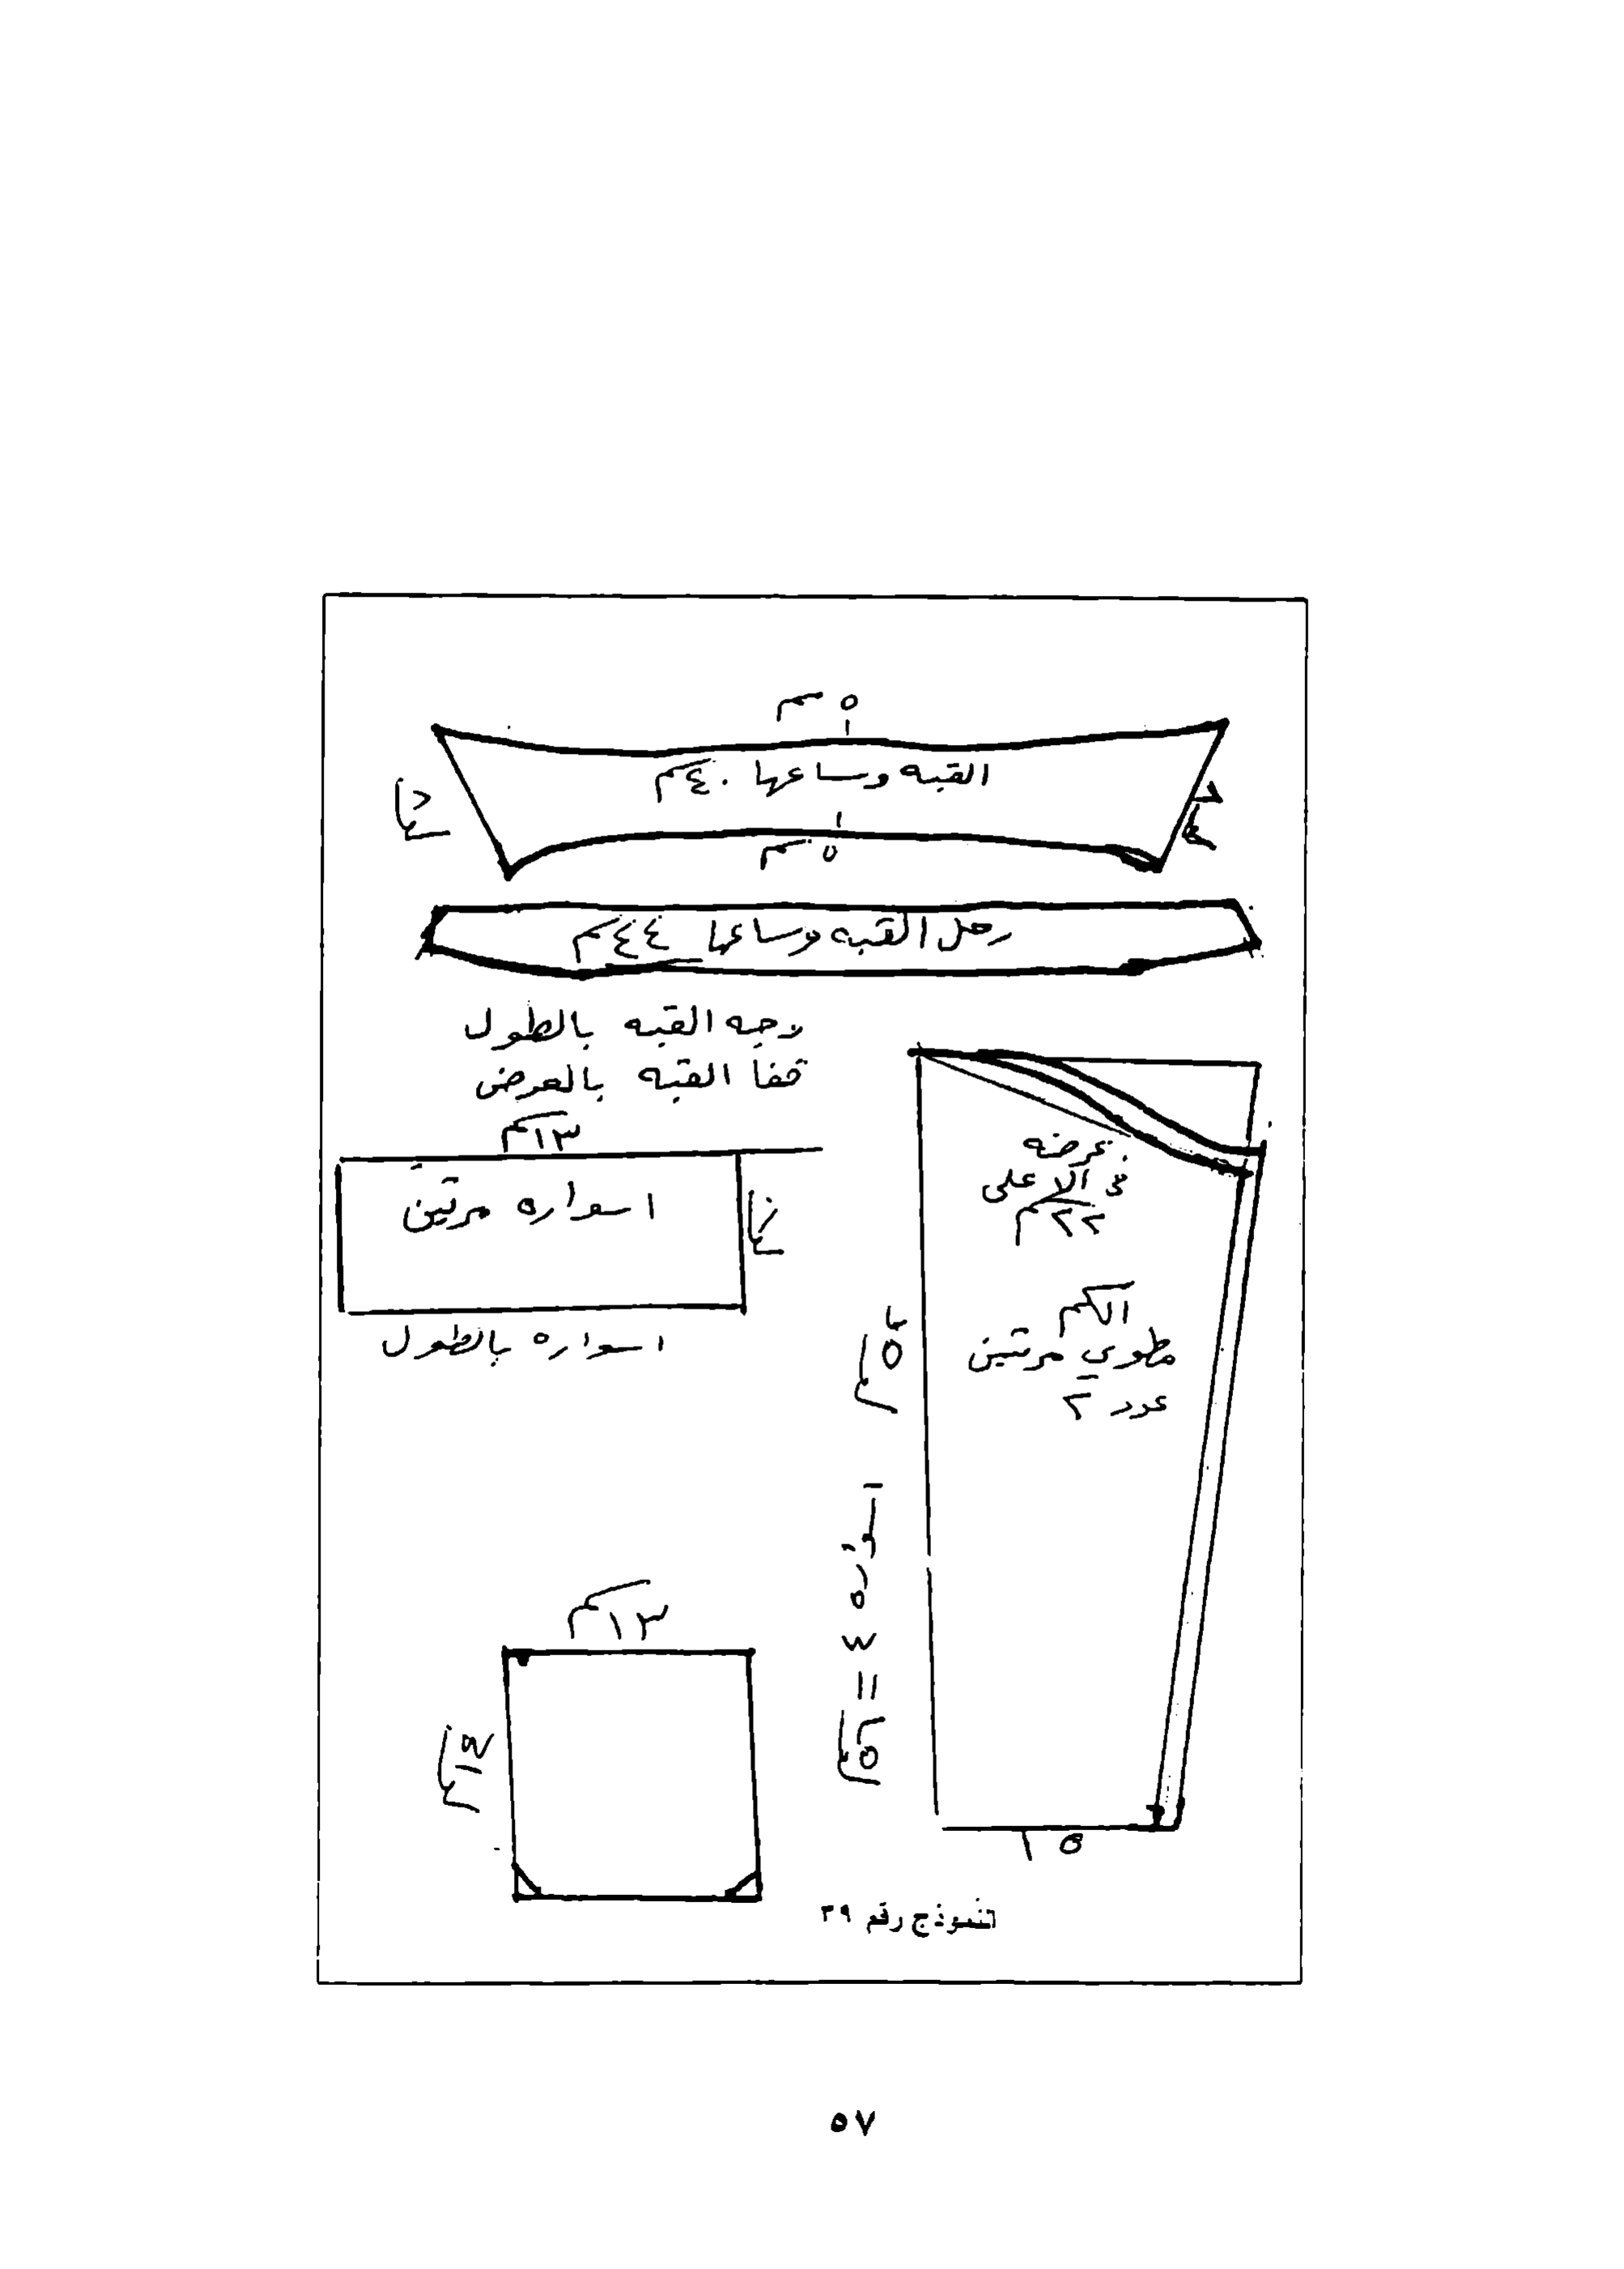 ٥ سم
القبه وساعها ٤٠ سم
٥ سم
رجل القبه وساعها ٤٤ سم
وجه القبه بالطول
قفا القبه بالعرض
١٣ سم
اسواره مرتين
اسواره بالطول
عرضه
في الاعلى
٢٢ سم
الكم
مطوي مرتين
عدد ٢
اسواره
١٣ سم
١٥
النموذج رقم ٣٩
٥٧